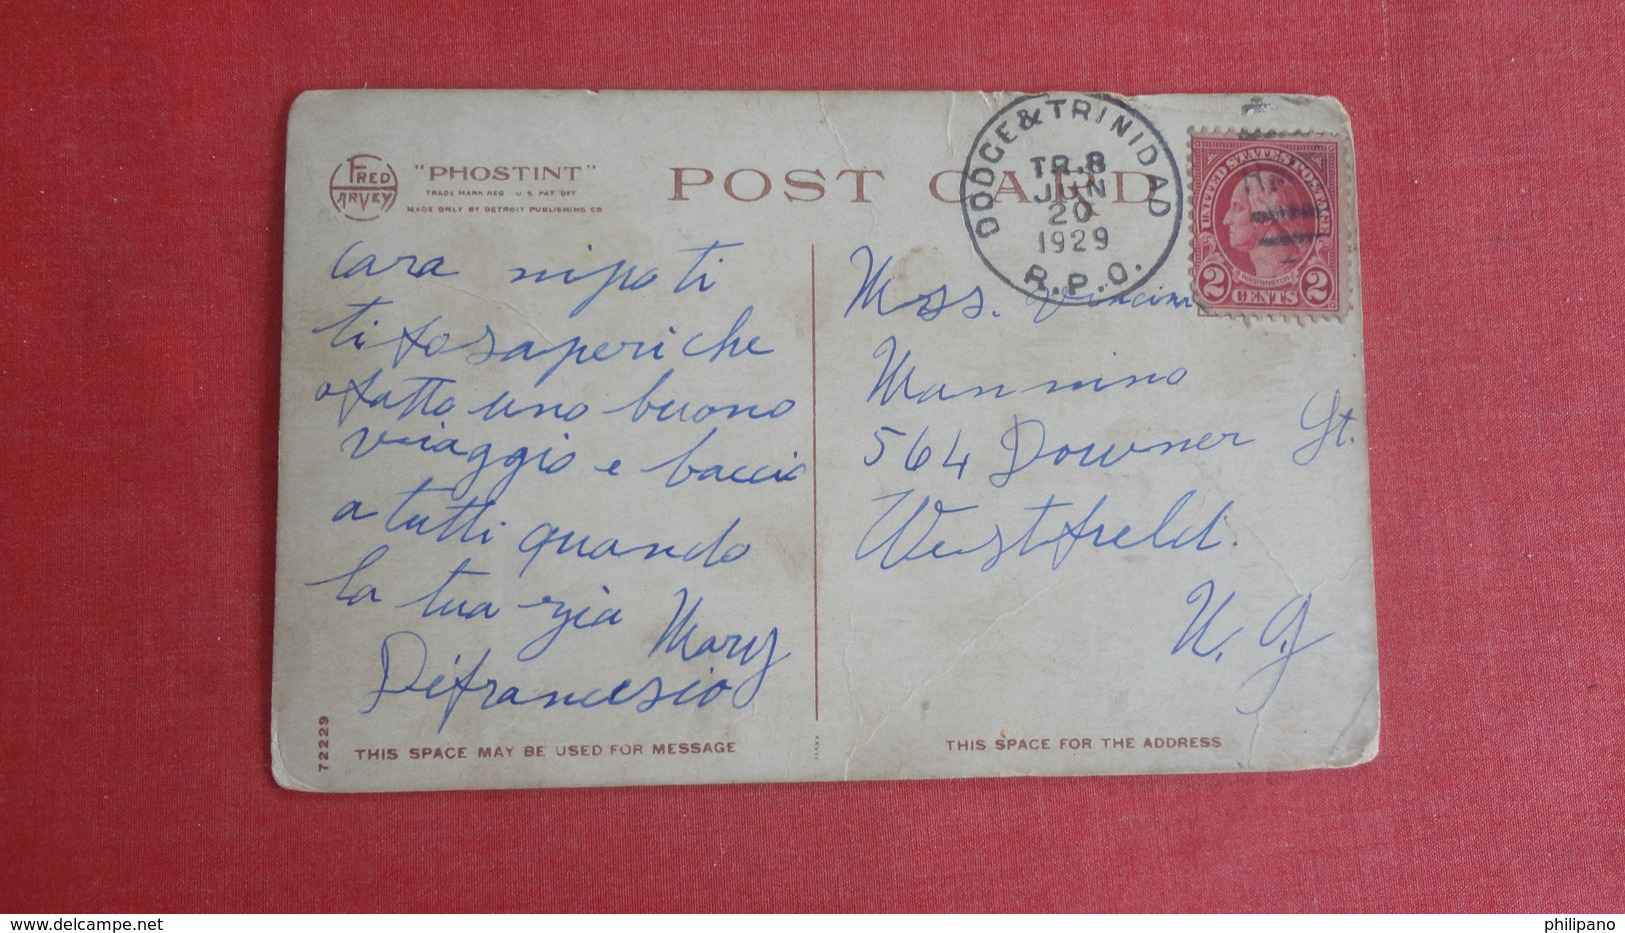 FRED HARVEY
"PHOSTINT"
TRADE MARK REG. U.S. PAT. OFF
MADE ONLY BY DETROIT PUBLISHING CO
POST CARD
DODGE & TRINIDAD
TR.8
JUN
20
1929
R.P.O.
UNITED STATES POSTAGE
WASHINGTON
2 CENTS 2
cara nipoti
ti fo saperi che
o fatto uno buono
viaggio e baccio
a tutti quando
la tua zia Mary
Difrancesio
Miss.
Mannino
564 Downer St.
Westfield.
N. J
72229
THIS SPACE MAY BE USED FOR MESSAGE
THIS SPACE FOR THE ADDRESS
www.delcampe.net
philipano